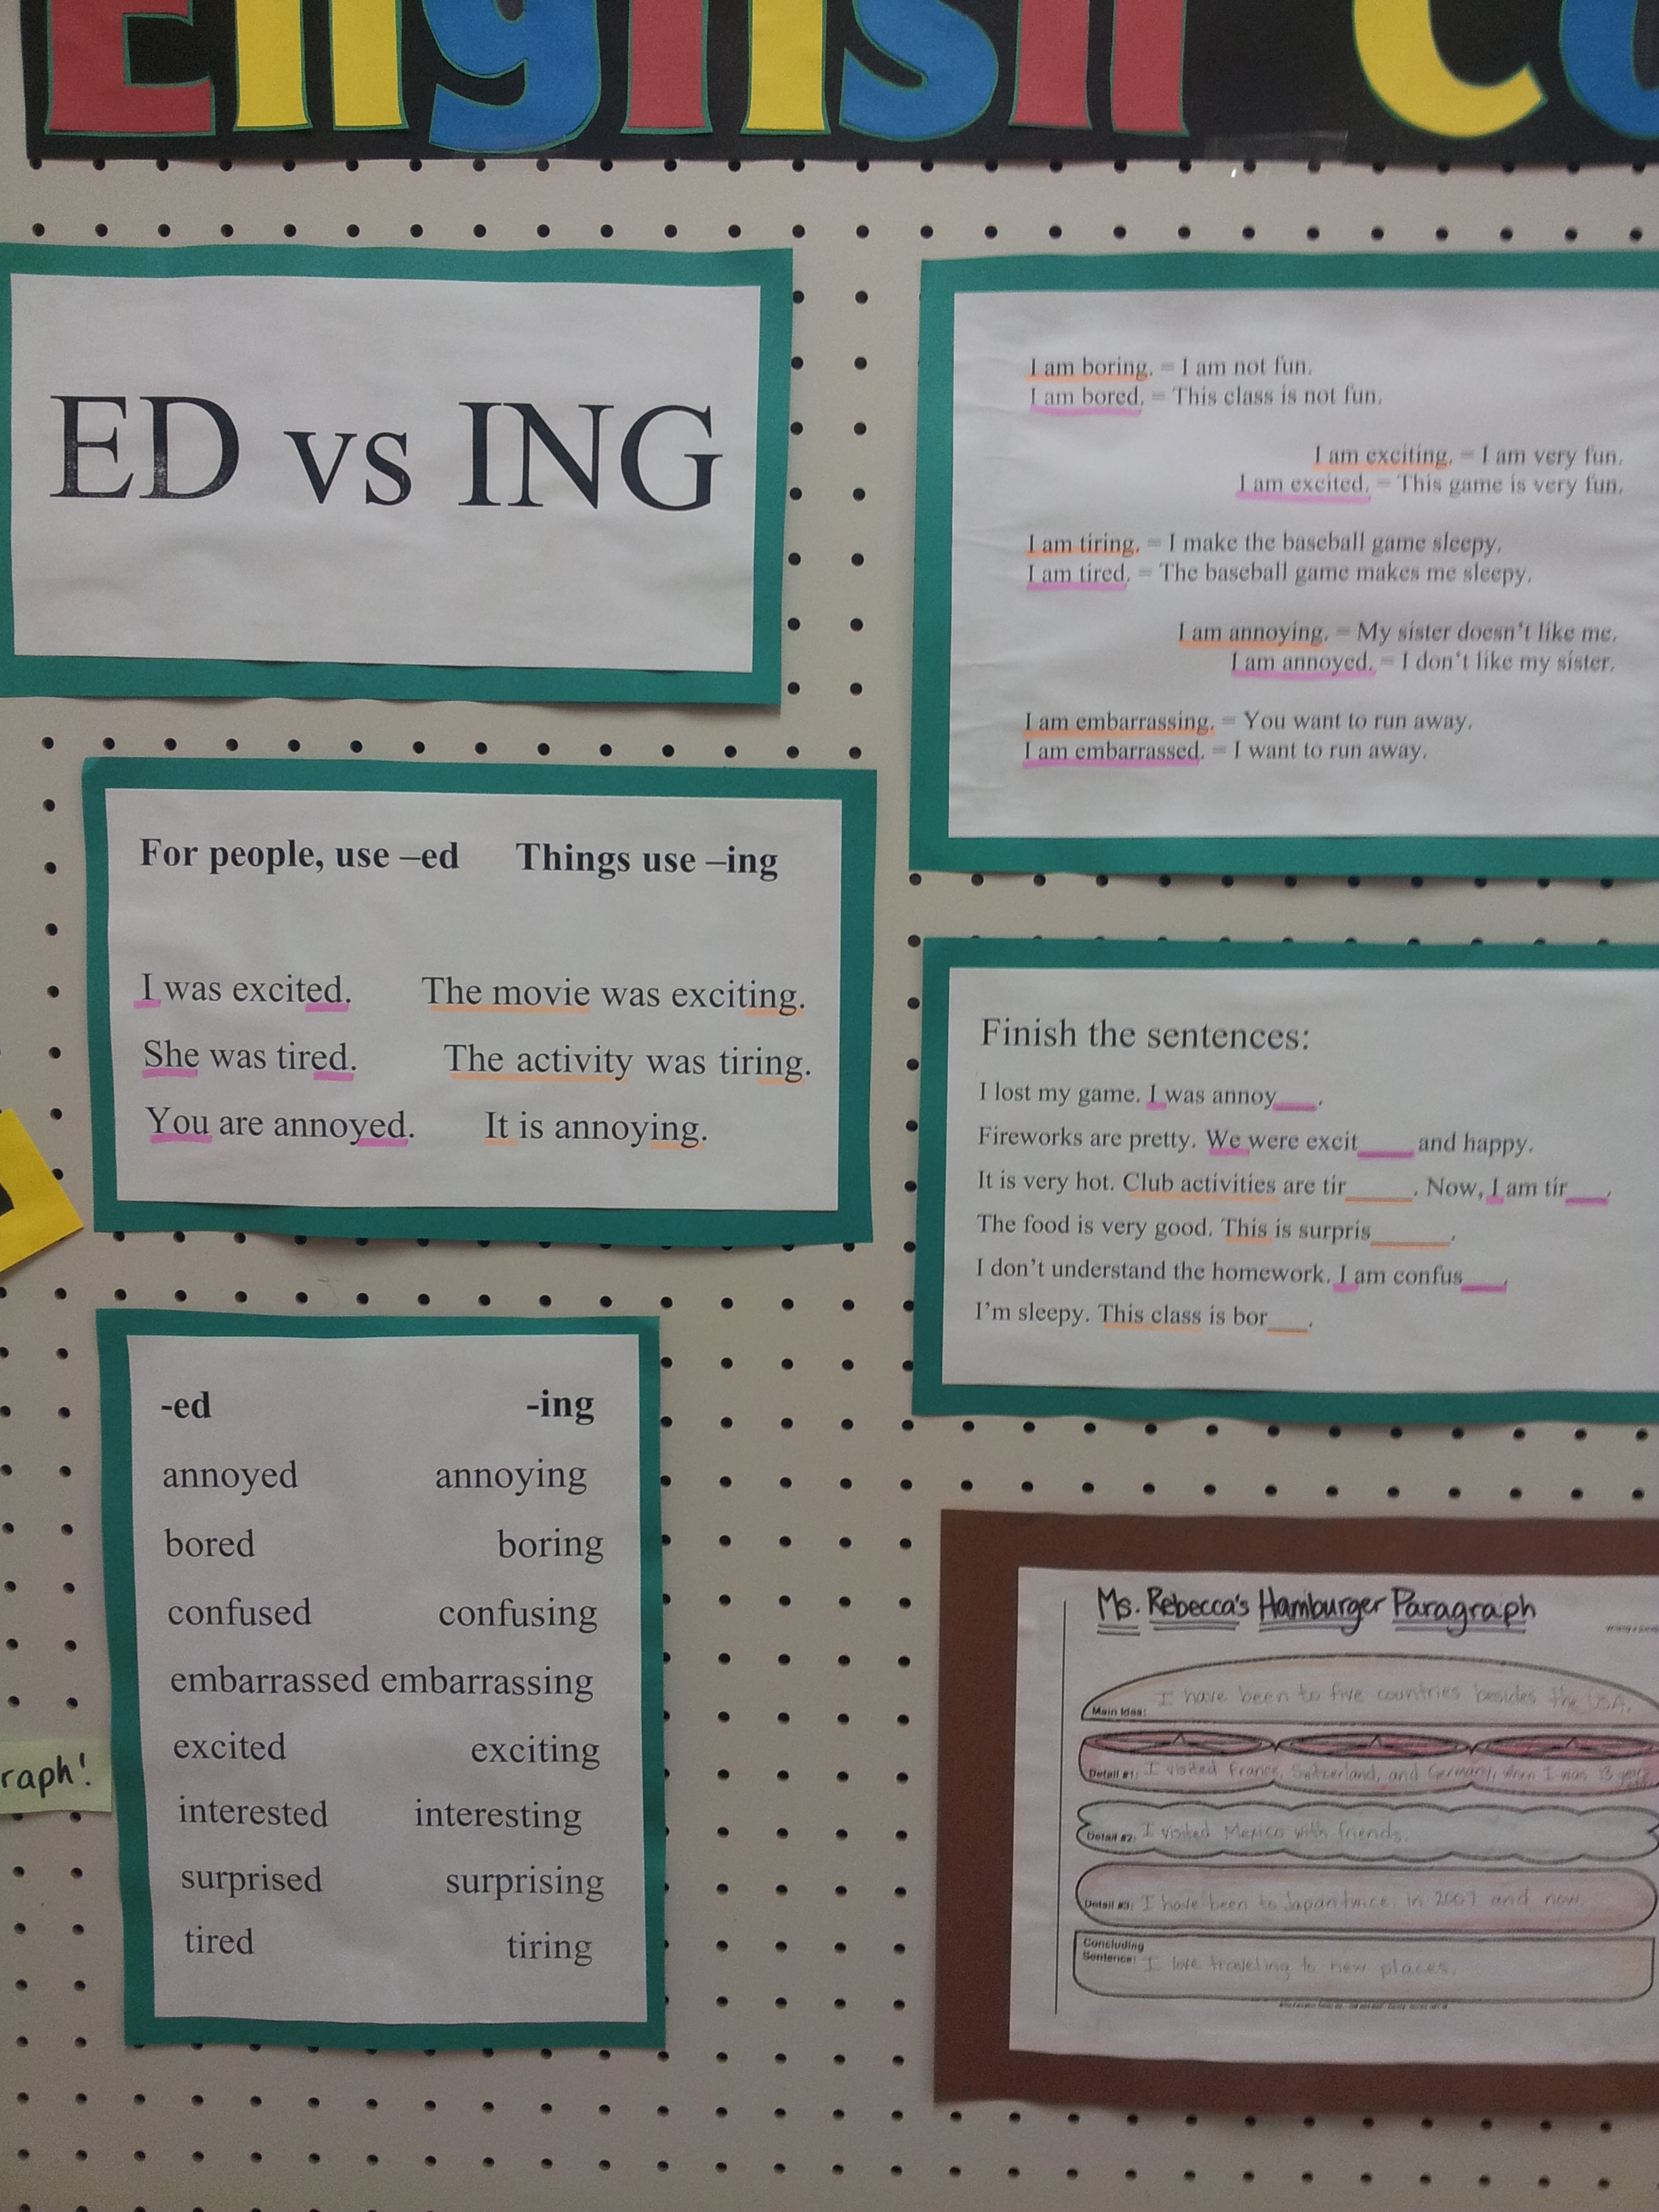 English
ED vs ING
I am boring. = I am not fun.
I am bored. = This class is not fun.
I am exciting. = I am very fun.
I am excited. = This game is very fun.
I am tiring. = I make the baseball game sleepy.
I am tired. = The baseball game makes me sleepy.
I am annoying. = My sister doesn't like me.
I am annoyed. = I don't like my sister.
I am embarrassing. = You want to run away.
I am embarrassed. = I want to run away.
For people, use –ed Things use –ing
I was excited. The movie was exciting.
She was tired. The activity was tiring.
You are annoyed. It is annoying.
Finish the sentences:
I lost my game. I was annoy___.
Fireworks are pretty. We were excit____ and happy.
It is very hot. Club activities are tir_____. Now, I am tir___.
The food is very good. This is surpris______.
I don't understand the homework. I am confus___.
I'm sleepy. This class is bor___.
-ed -ing
annoyed annoying
bored boring
confused confusing
embarrassed embarrassing
excited exciting
interested interesting
surprised surprising
tired tiring
raph!
Ms. Rebecca's Hamburger Paragraph
Main Idea: I have been to five countries besides the USA.
Detail #1: I visited France, Switzerland, and Germany, when I was 13
Detail #2: I visited Mexico with friends.
Detail #3: I have been to Japan twice, in 2007 and now.
Concluding
Sentence: I love traveling to new places.